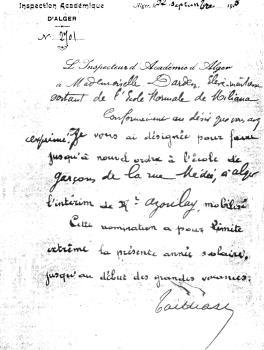 Inspection Académique
D'ALGER
N° 2701
Alger, le 22 septembre
L'Inspecteur d'Académie d'Alger
à Mademoiselle Darden, élève-maîtresse
sortant de l'Ecole Normale de Miliana
Conformément au désir que vous avez
exprimé, je vous ai désignée pour faire
jusqu'à nouvel ordre à l'école de
garçons de la rue Médée, à Alger
l'intérim de Mr Azoulay, mobilisé
Cette nomination a pour limite
extrême la présente année scolaire,
jusqu'au début des grandes vacances.